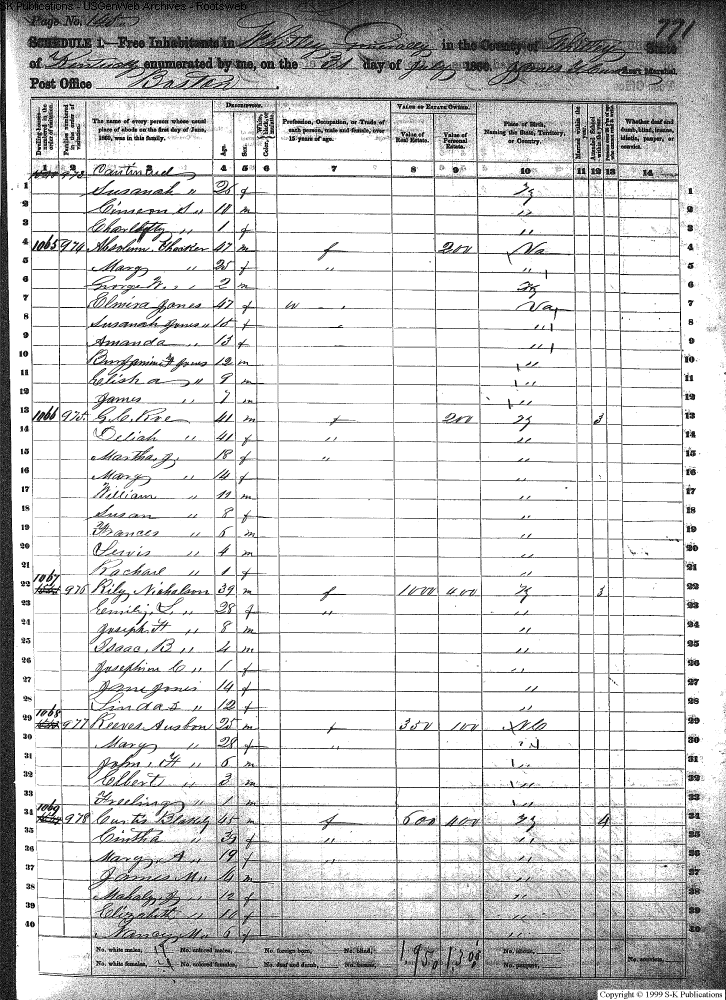 S-K Publications - USGenWeb Archives - Rootsweb
Page No. 771
SCHEDULE 1.—Free Inhabitants in Whitley in the County of Whitley State
of Kentucky enumerated by me, on the 31 day of July 1860. Ass't Marshal.
Post Office Boston
DESCRIPTION. VALUE OF ESTATE OWNED.
Dwelling-houses numbered in the order of visitation. Families numbered in the order of visitation. The name of every person whose usual place of abode on the first day of June, 1860, was in this family. Age. Sex. Color, White, black, or mulatto. Profession, Occupation, or Trade of each person, male and female, over 15 years of age. Value of Real Estate. Value of Personal Estate. Place of Birth, Naming the State, Territory, or Country. Married within the year. Attended School within the year. Whether deaf and dumb, blind, insane, idiotic, pauper, or convict.
1 2 3 4 5 6 7 8 9 10 11 12 13 14
973 Continued
1 Susanah " 26 f Ky 1
2 Simeon S " 10 m " 2
3 " 1 f " 3
4 1065 974 Absolum 47 m f 200 Va 4
5 Mary " 25 f " " 5
6 George W. " 2 m Ky 6
7 Elmira Jones 47 f Va 7
8 Susanah Jones 15 f " 8
9 Amanda " 13 f " 9
10 Benjamin F Jones 12 m " 10
11 Elisha " 9 m " 11
12 James " 7 m " 12
13 1066 975 G. C. 41 m f 200 Ky 3 13
14 Deliah " 41 f " " 14
15 Martha J. 18 f " " 15
16 Mary " 14 f " 16
17 William " 11 m " 17
18 Susan " 8 f " 18
19 Frances " 6 m " 19
20 Lewis " 4 m " 20
21 Rachael " 1 f " 21
22 1067 976 Rily Nicholson 39 m f 1000 400 Ky 3 22
23 Emily L. " 28 f " " 23
24 Joseph H " 8 m " 24
25 Isaac B " 4 m " 25
26 Josephine C " 1 f " 26
27 Jane Jones 14 f " 27
28 Linda S " 12 f " 28
29 1068 977 Reeves Ausbon 25 m f 350 100 29
30 Mary " 28 f " " 30
31 John H " 6 m " 31
32 Elbert " 3 m " 32
33 " 1 m " 33
34 1069 978 Curtis Blakely 45 m f 600 400 Ky 4
35 Cintha " f " "
36 Mary A " 19 f " "
37 James M " m "
38 Mahaly " 12 f "
39 Elizabeth " 10 f "
40 Nancy M " 6 f "
No. white males, No. colored males, No. foreign born, No. blind, 1,950 1,300 No. idiotic,
No. white females, No. colored females, No. deaf and dumb, No. insane, No. paupers, No. convicts,
Copyright © 1999 S-K Publications